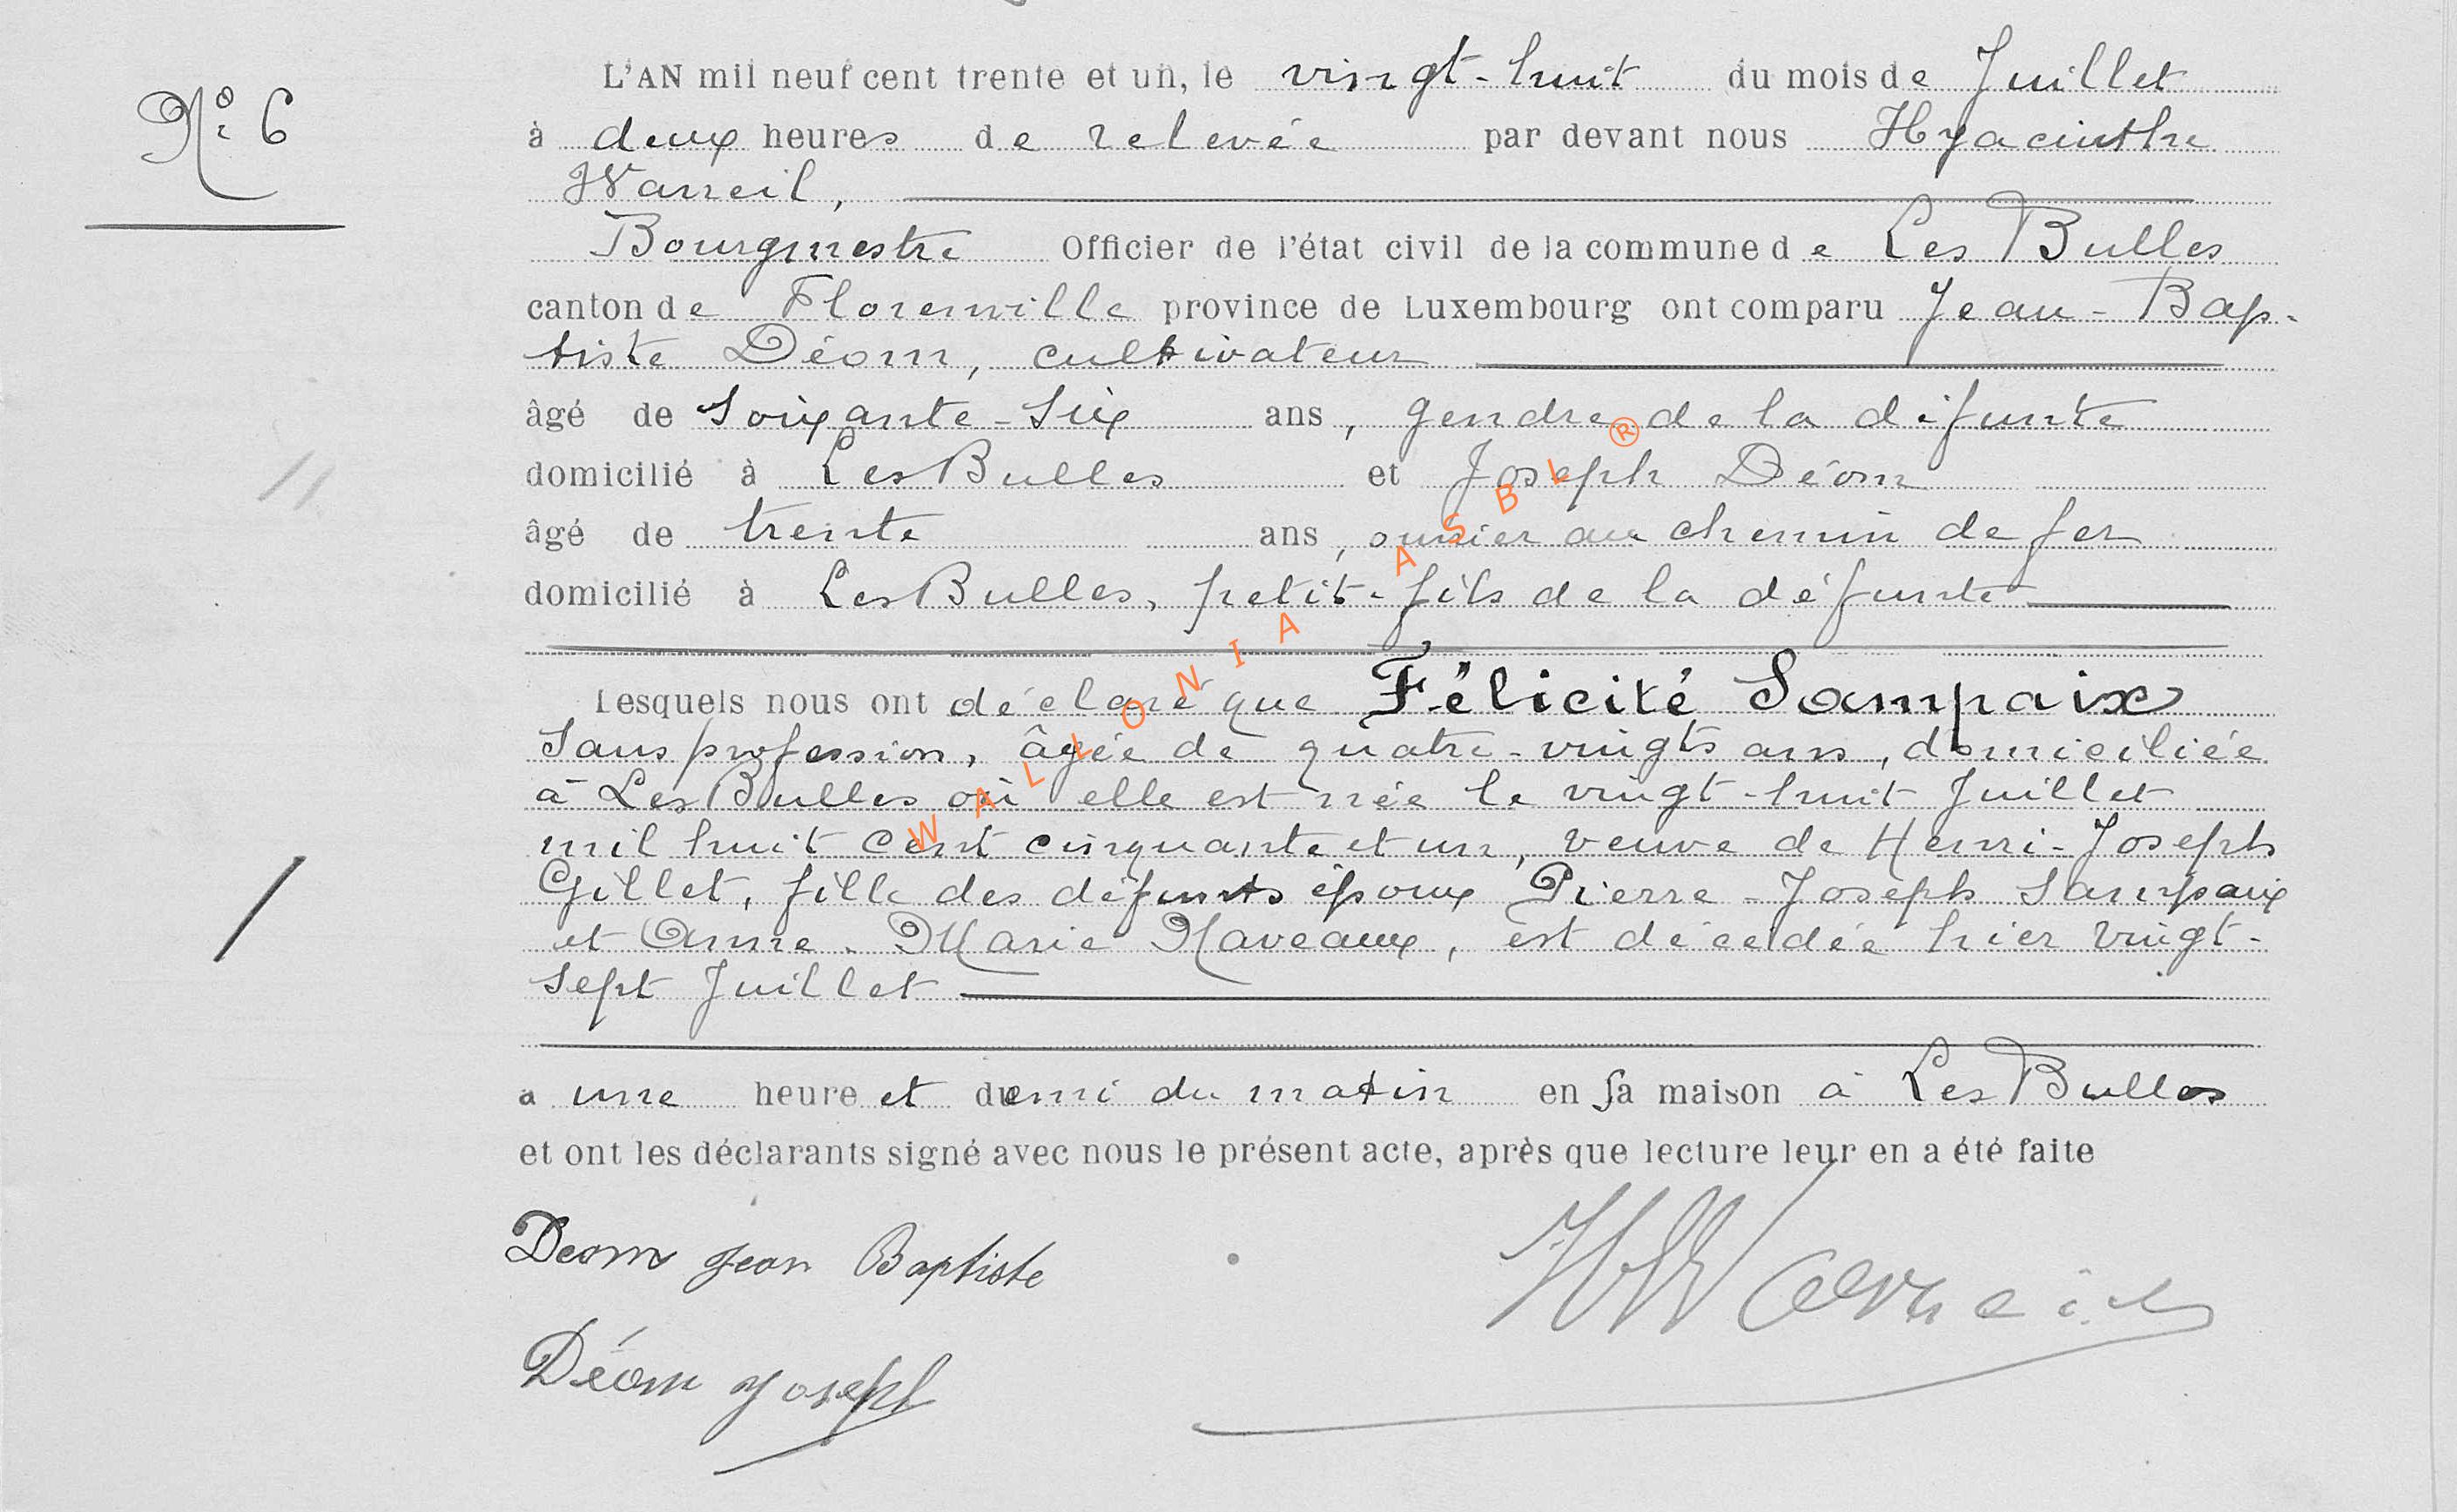 N° 6
L'AN mil neuf cent trente et un, le vingt-huit du mois de Juillet
à deux heures de relevée par devant nous Hyacinthe
Warreil,
Bourgmestre Officier de l'état civil de la commune de Les Bulles
canton de Florenville province de Luxembourg ont comparu Jean-Bap-
tiste Déom, cultivateur
âgé de Soixante-Six ans, gendre de la défunte
domicilié à Les Bulles et Joseph Déom
âgé de trente ans, ouvrier au chemin de fer
domicilié à Les Bulles, petit-fils de la défunte
Lesquels nous ont déclaré que Félicité Sampaix
Sans profession, âgée de quatre-vingts ans, domiciliée
à Les Bulles où elle est née le vingt-huit Juillet
mil huit cent cinquante et un, veuve de Henri-Joseph
Gillet, fille des défunts époux Pierre-Joseph Sampaix
et Anne-Marie Naveaux, est décédée hier vingt-
sept Juillet
a une heure et demi du matin en sa maison à Les Bulles
et ont les déclarants signé avec nous le présent acte, après que lecture leur en a été faite
Deom Jean Baptiste
Déom Joseph
WALLONIA ASBL ®